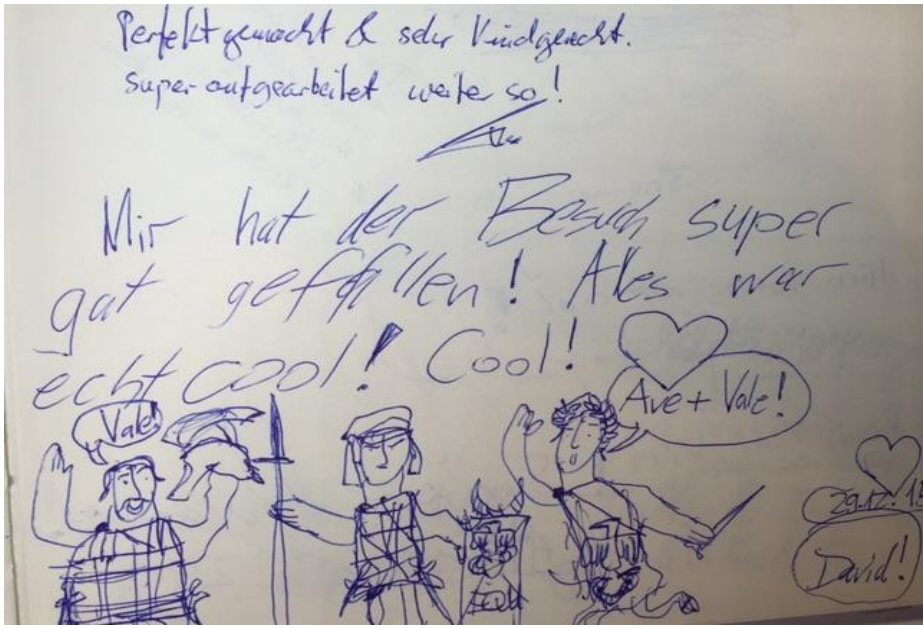 Perfekt gemacht & sehr kindgerecht.
Super aufgearbeitet weiter so!
Mir hat der Besuch super
gut gefallen! Alles war
echt cool! Cool!
Vale!
Ave + Vale!
29.12.
David!